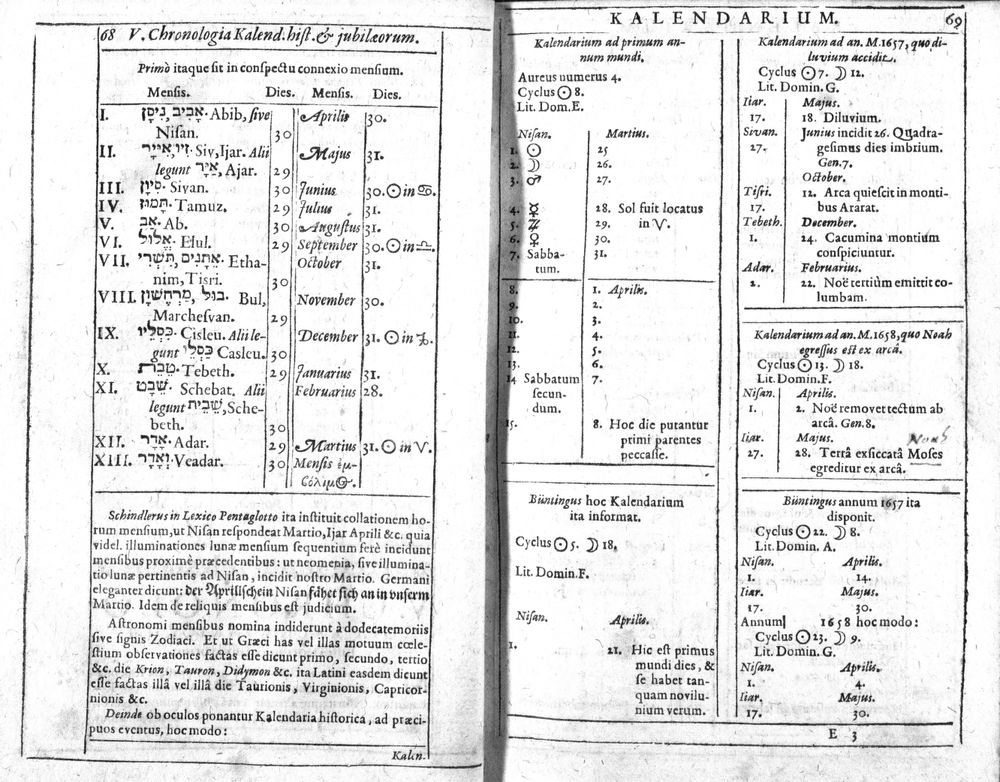 68 V. Chronologia Kalend. hiſt. & jubilæorum.
Primò itaque ſit in conſpectu connexio menſium.
Menſis. Dies. Menſis. Dies.
I. אָבִיב, נִיסָן. Abib, ſive Aprilis 30.
Niſan. 30
II. זִיו, אִיָּיר. Siv, Ijar. Alii Majus 31.
legunt אִיָּר, Ajar. 29
III. סִיוָן. Sivan. 30 Junius 30. ☉ in ♋.
IV. תַּמּוּז. Tamuz. 29 Julius 31.
V. אָב. Ab. 30 Auguſtus 31.
VI. אֱלוּל. Elul. 29 September 30. ☉ in ♎.
VII. אֵתָנִים, תִּשְׁרִי. Etha- October 31.
nim, Tisri. 30
VIII. בוּל, מַרְחֶשְׁוָן. Bul, November 30.
Marcheſvan. 29
IX. כִּסְלֵיו. Cisleu. Alii le- December 31. ☉ in ♑.
gunt כַּסְלֵו Casleu. 30
X. טֵבֵת. Tebeth. 29 Januarius 31.
XI. שְׁבָט. Schebat. Alii Februarius 28.
legunt שְׁבֵית, Sche-
beth. 30
XII. אֲדָר. Adar. 29 Martius 31. ☉ in ♈.
XIII. וַאֲדָר. Veadar. 30 Menſis ἐμ-
Schindlerus in Lexico Pentaglotto ita inſtituit collationem ho-
rum menſium, ut Niſan reſpondeat Martio, Ijar Aprili &c. quia
videl. illuminationes lunæ menſium ſequentium ferè incidunt
menſibus proximè præcedentibus: ut neomenia, ſive illumina-
tio lunæ pertinentis ad Niſan, incidit noſtro Martio. Germani
eleganter dicunt: der Aprillſchein Niſan fähet ſich an in unſerm
Martio. Idem de reliquis menſibus eſt judicium.
Aſtronomi menſibus nomina indiderunt à dodecatemoriis
ſive ſignis Zodiaci. Et ut Græci has vel illas motuum cœle-
ſtium obſervationes factas eſſe dicunt primo, ſecundo, tertio
&c. die Krion, Tauron, Didymon &c. ita Latini easdem dicunt
eſſe factas illâ vel illâ die Taurionis, Virginionis, Capricor-
nionis &c.
Deinde ob oculos ponantur Kalendaria hiſtorica, ad præci-
puos eventus, hoc modo:
Kalen-
KALENDARIUM. 69
Kalendarium ad primum an-
num mundi.
Aureus numerus 4.
Cyclus ☉ 8.
Lit. Dom. E.
Niſan. Martius.
1. ☉ 25
2. ☽ 26.
3. ♂ 27.
4. ☿ 28. Sol fuit locatus
5. ♃ 29. in ♈.
6. ♀ 30.
7. Sabba- 31.
tum.
8. 1. Aprilis.
9. 2.
10. 3.
11. 4.
12. 5.
13. 6.
14 Sabbatum 7.
ſecun-
dum.
15. 8. Hoc die putantur
primi parentes
peccaſſe.
Büntingus hoc Kalendarium
ita informat.
Cyclus ☉ 5. ☽ 18.
Lit. Domin. F.
Niſan. Aprilis.
1. 21. Hic eſt primus
mundi dies, &
ſe habet tan-
quam novilu-
nium verum.
Kalendarium ad an. M. 1657, quo di-
luvium accidit.
Cyclus ☉ 7. ☽ 12.
Lit. Domin. G.
Iiar. Majus.
17. 18. Diluvium.
Sivan. Junius incidit 26. Quadra-
27. geſimus dies imbrium.
Gen. 7.
October.
Tiſri. 12. Arca quieſcit in monti-
17. bus Ararat.
Tebeth. December.
1. 24. Cacumina montium
conſpiciuntur.
Adar. Februarius.
2. 22. Noë tertiùm emittit co-
lumbam.
Kalendarium ad an. M. 1658, quo Noah
egreſſus eſt ex arcâ.
Cyclus ☉ 13. ☽ 18.
Lit. Domin. F.
Niſan. Aprilis.
1. 2. Noë removet tectum ab
arcâ. Gen. 8.
Iiar. Majus. Noah
27. 28. Terrâ exſiccatâ Moſes
egreditur ex arcâ.
Büntingus annum 1657 ita
diſponit.
Cyclus ☉ 22. ☽ 8.
Lit. Domin. A.
Niſan. Aprilis.
1. 14.
Iiar. Majus.
17. 30.
Annum 1658 hoc modo:
Cyclus ☉ 23. ☽ 9.
Lit. Domin. G.
Niſan. Aprilis.
1. 4.
Iiar. Majus.
17. 30.
E 3